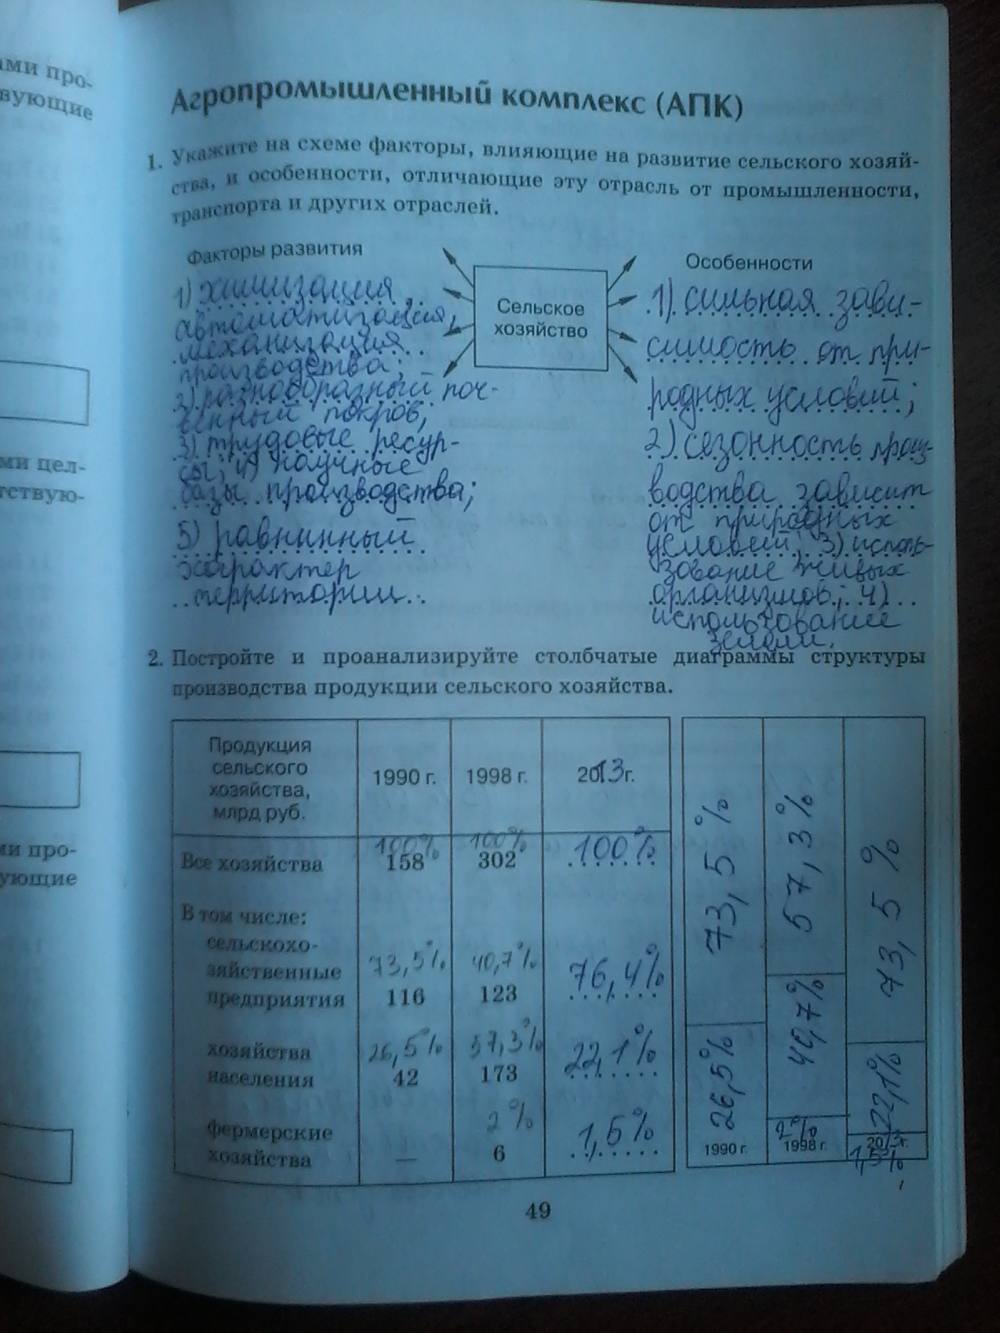 ами про-
вующие
ми цел-
тствую-
ми про-
ующие
Агропромышленный комплекс (АПК)
1. Укажите на схеме факторы, влияющие на развитие сельского хозяй-
ства, и особенности, отличающие эту отрасль от промышленности,
транспорта и других отраслей.
Факторы развития
1) химизация,
автоматизация,
механизация
производства;
2) разнообразный поч-
венный покров;
3) трудовые ресур-
сы; 4) научные
базы производства;
5) равнинный
характер
территории.
Сельское
хозяйство
Особенности
1) сильная зави-
симость от при-
родных условий;
2) сезонность произ-
водства зависит
от природных
условий; 3) исполь-
зование живых
организмов; 4)
использование
земли.
2. Постройте и проанализируйте столбчатые диаграммы структуры
производства продукции сельского хозяйства.
Продукция
сельского
хозяйства,
млрд руб.
1990 г. 1998 г. 2013г.
100% 100% 100%
Все хозяйства 158 302
В том числе:
сельскохо-
зяйственные 73,5% 40,7% 76,4%
предприятия 116 123
хозяйства 26,5% 57,3% 22,1%
населения 42 173
фермерские 2% 1,5%
хозяйства — 6
73,5% 57,3% 73,5%
26,5% 40,7% 22,1%
2% 1,5%
1990 г. 1998 г. 2013г.
49